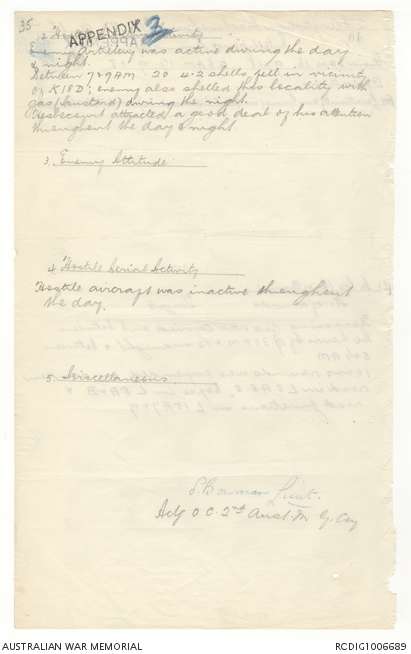 35
APPENDIX 3
2 Hostile Activity
Enemy Artillery was active during the day
& night.
Between 7 & 9 AM. 20 4.2 shells fell in vicinity
of K18D; enemy also shelled this locality with
gas (mustard) during the night.
attracted a good deal of his attention
throughout the day & night
3. Enemy Attitude.
4 Hostile Aerial Activity
Hostile aircraft was inactive throughout
the day.
5. Miscellaneous.
S. Bowman Lieut.
Adj O.C. 2nd Aust. M. G. Coy
AUSTRALIAN WAR MEMORIAL
RCDIG1006689